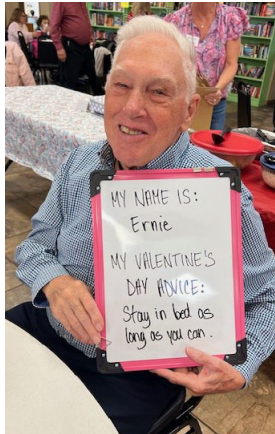 MY NAME IS:
Ernie
MY VALENTINE'S
DAY ADVICE:
Stay in bed as
long as you can.